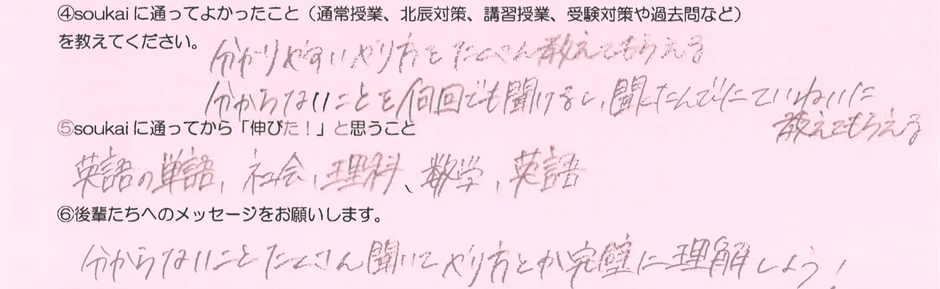 ④soukaiに通ってよかったこと（通常授業、北辰対策、講習授業、受験対策や過去問など）
を教えてください。
分かりやすいやり方をたくさん教えてもらえる
分からないことを何回でも聞けるし、聞
ていねいに
教えてもらえる
⑤soukaiに通ってから「伸びた！」と思うこと
英語の単語，社会，理科、数学，英語
⑥後輩たちへのメッセージをお願いします。
分からないことたくさん聞いてやり方とか完璧に理解しよう！